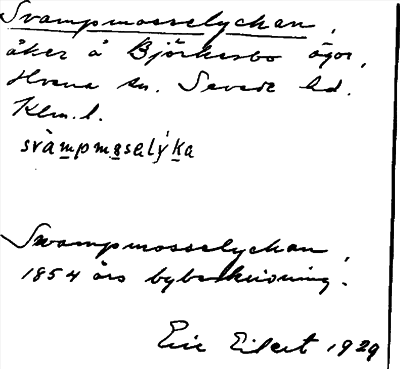 Svampmosselyckan,
åker å Björkesbo ägor,
Hvena sn. Sevede hd.
Klm. l.
svàmpmɷselýka
Swampmosselyckan,
1854 års bybeskrivning.
Eric Eilert 1929